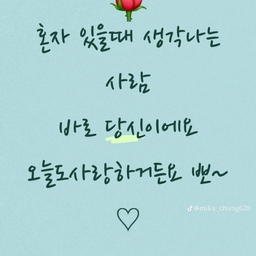 혼자 있을때 생각나는
사람
바로 당신이에요
오늘도사랑하거든요 뽀~